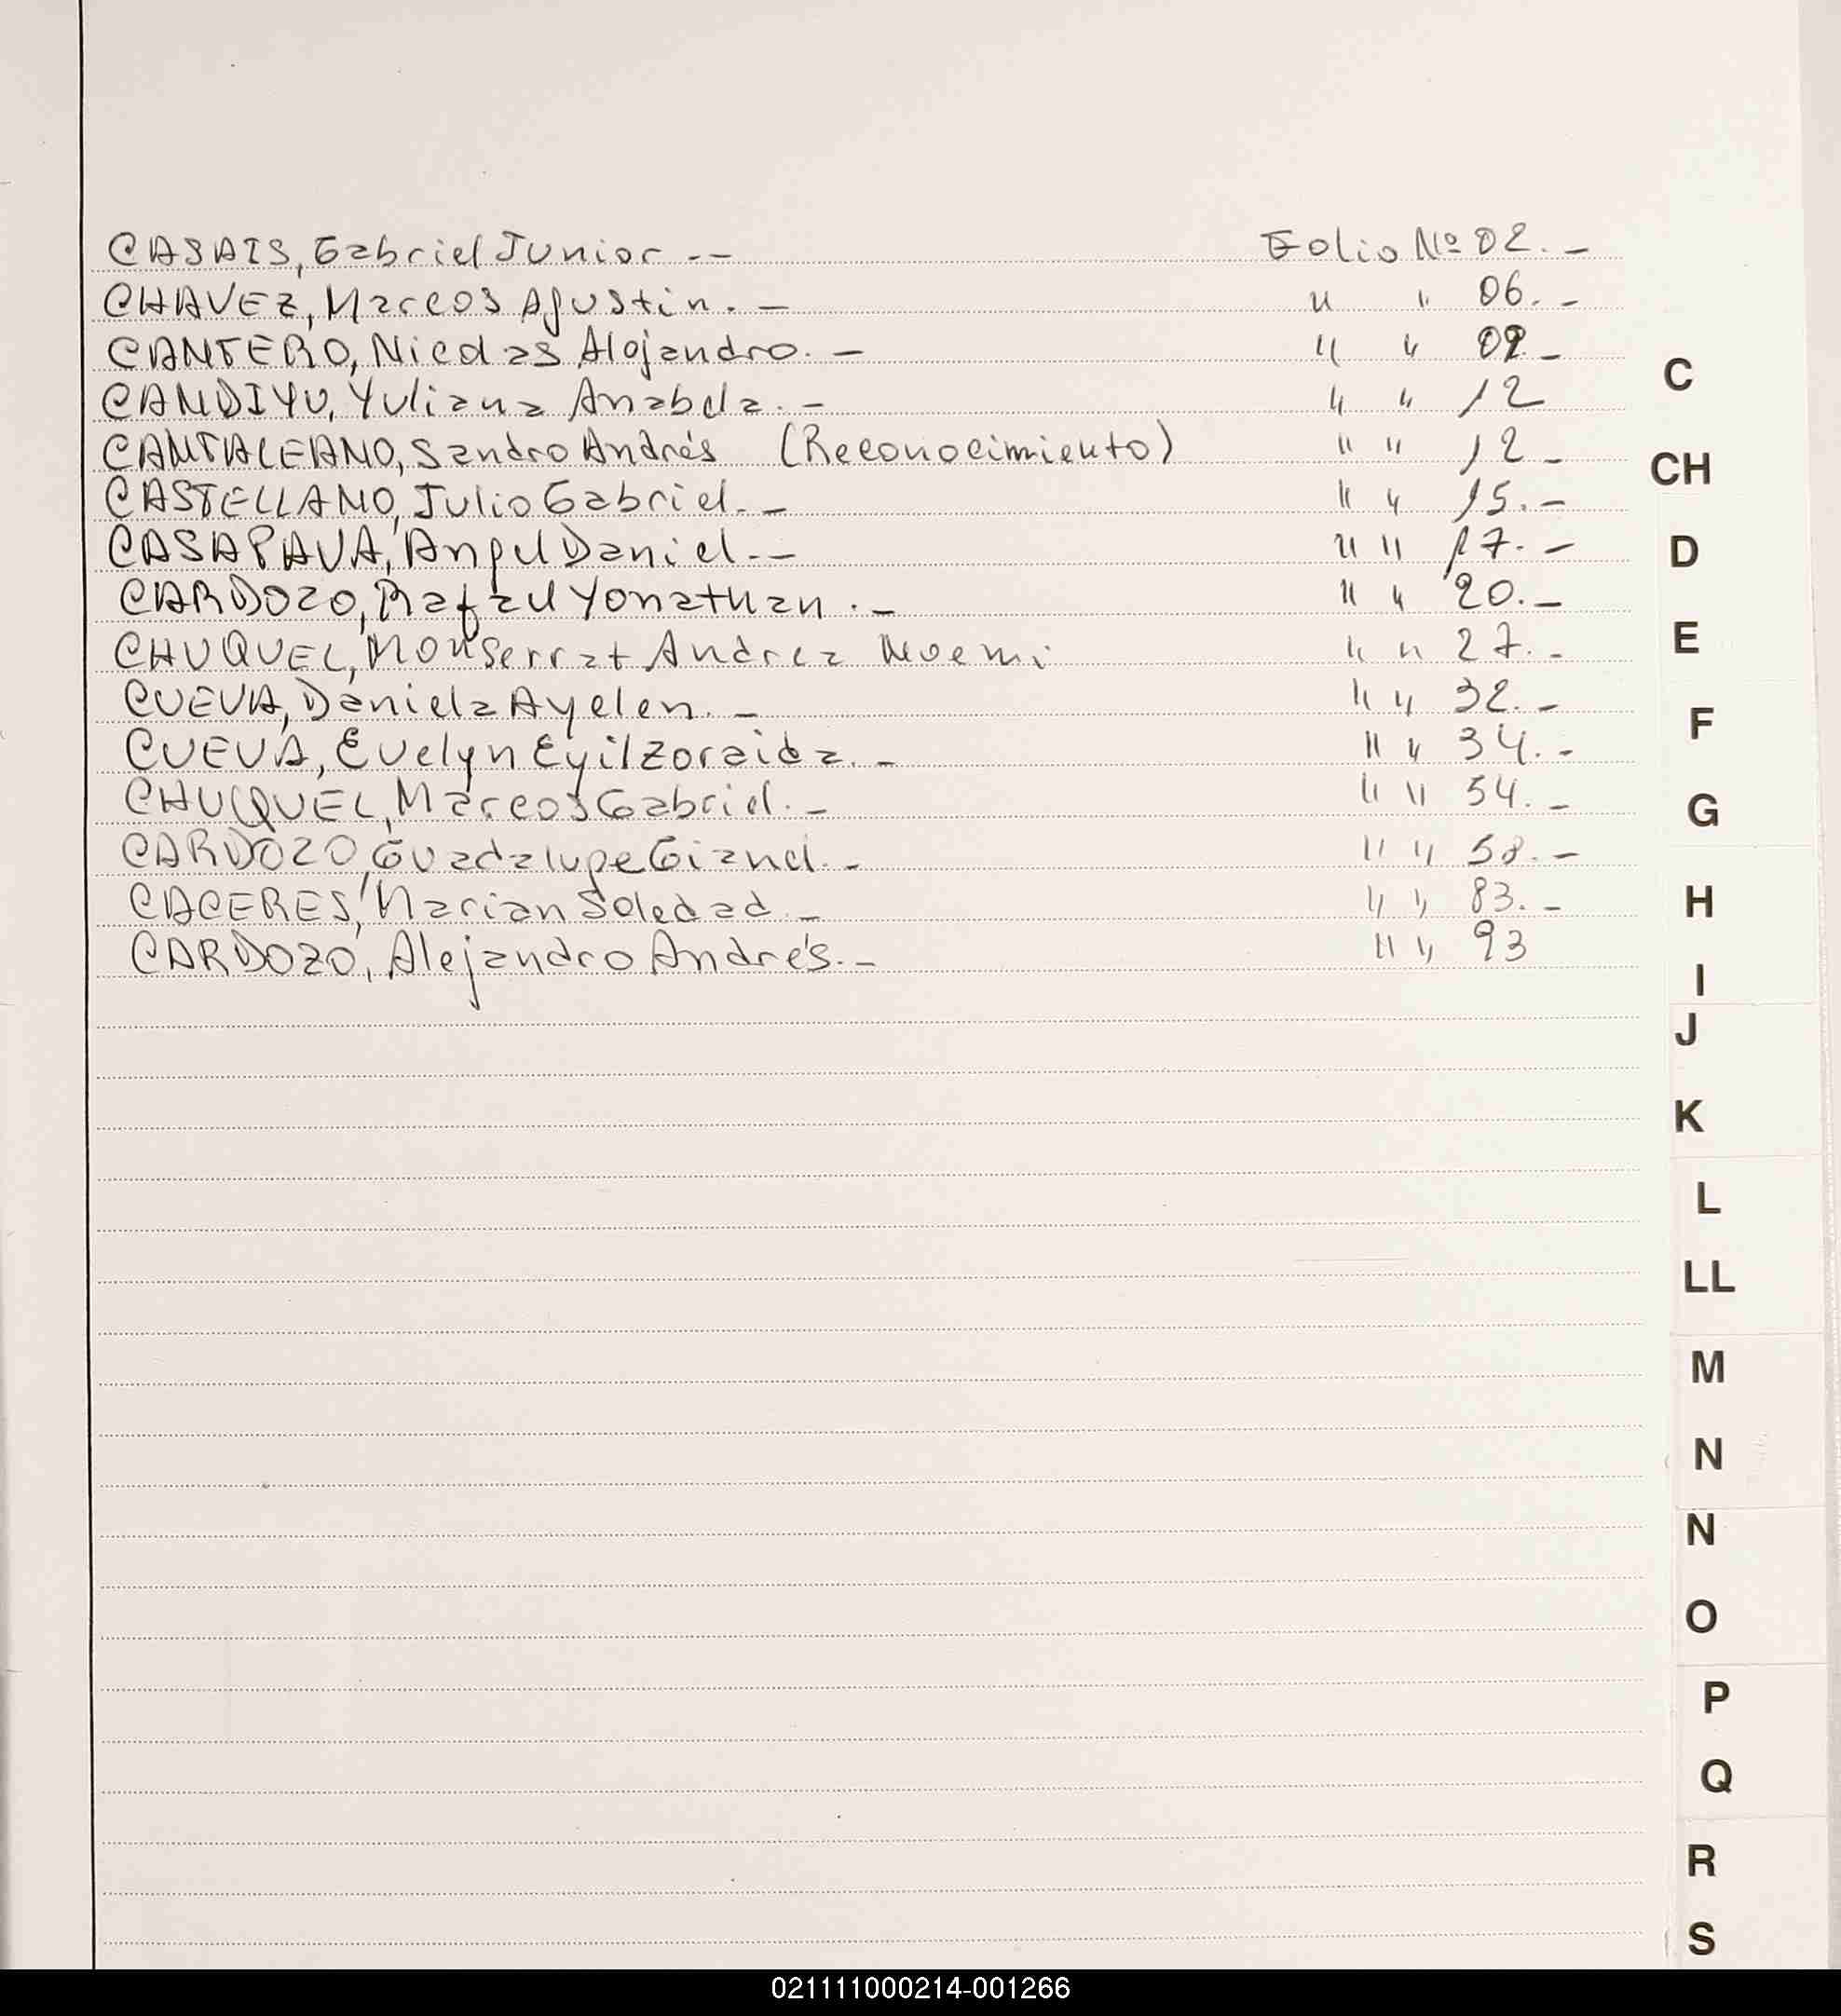 CASAIS, Gabriel Junior -- Folio Nº 02.-
CHAVEZ, Marcos Agustin.- " " 06.-
CANTERO, Nicolas Alejandro.- " " 09.-
CANDIYU, Yuliana Anabela.- " " 12
CANTALEANO, Sandro Andrés (Reconocimiento) " " 12-
CASTELLANO, Julio Gabriel.- " " 15.-
CASAPAVA, Angel Daniel.-- " " 17.-
CARDOZO, Rafael Yonathan.- " " 20.-
CHUQUEL, Monserrat Andrea Noemi " " 27.-
CUEVA, Daniela Ayelen.- " " 32.-
CUEVA, Evelyn Eyil Zoraida.- " " 34.-
CHUCQUEL, Marcos Gabriel.- " " 54.-
CARDOZO, Guadalupe Gianel.- " " 58.-
CACERES, Marian Soledad.- " " 83.-
CARDOZO, Alejandro Andrés.- " " 93
C
CH
D
E
F
G
H
I
J
K
L
LL
M
N
N
O
P
Q
R
S
021111000214-001266